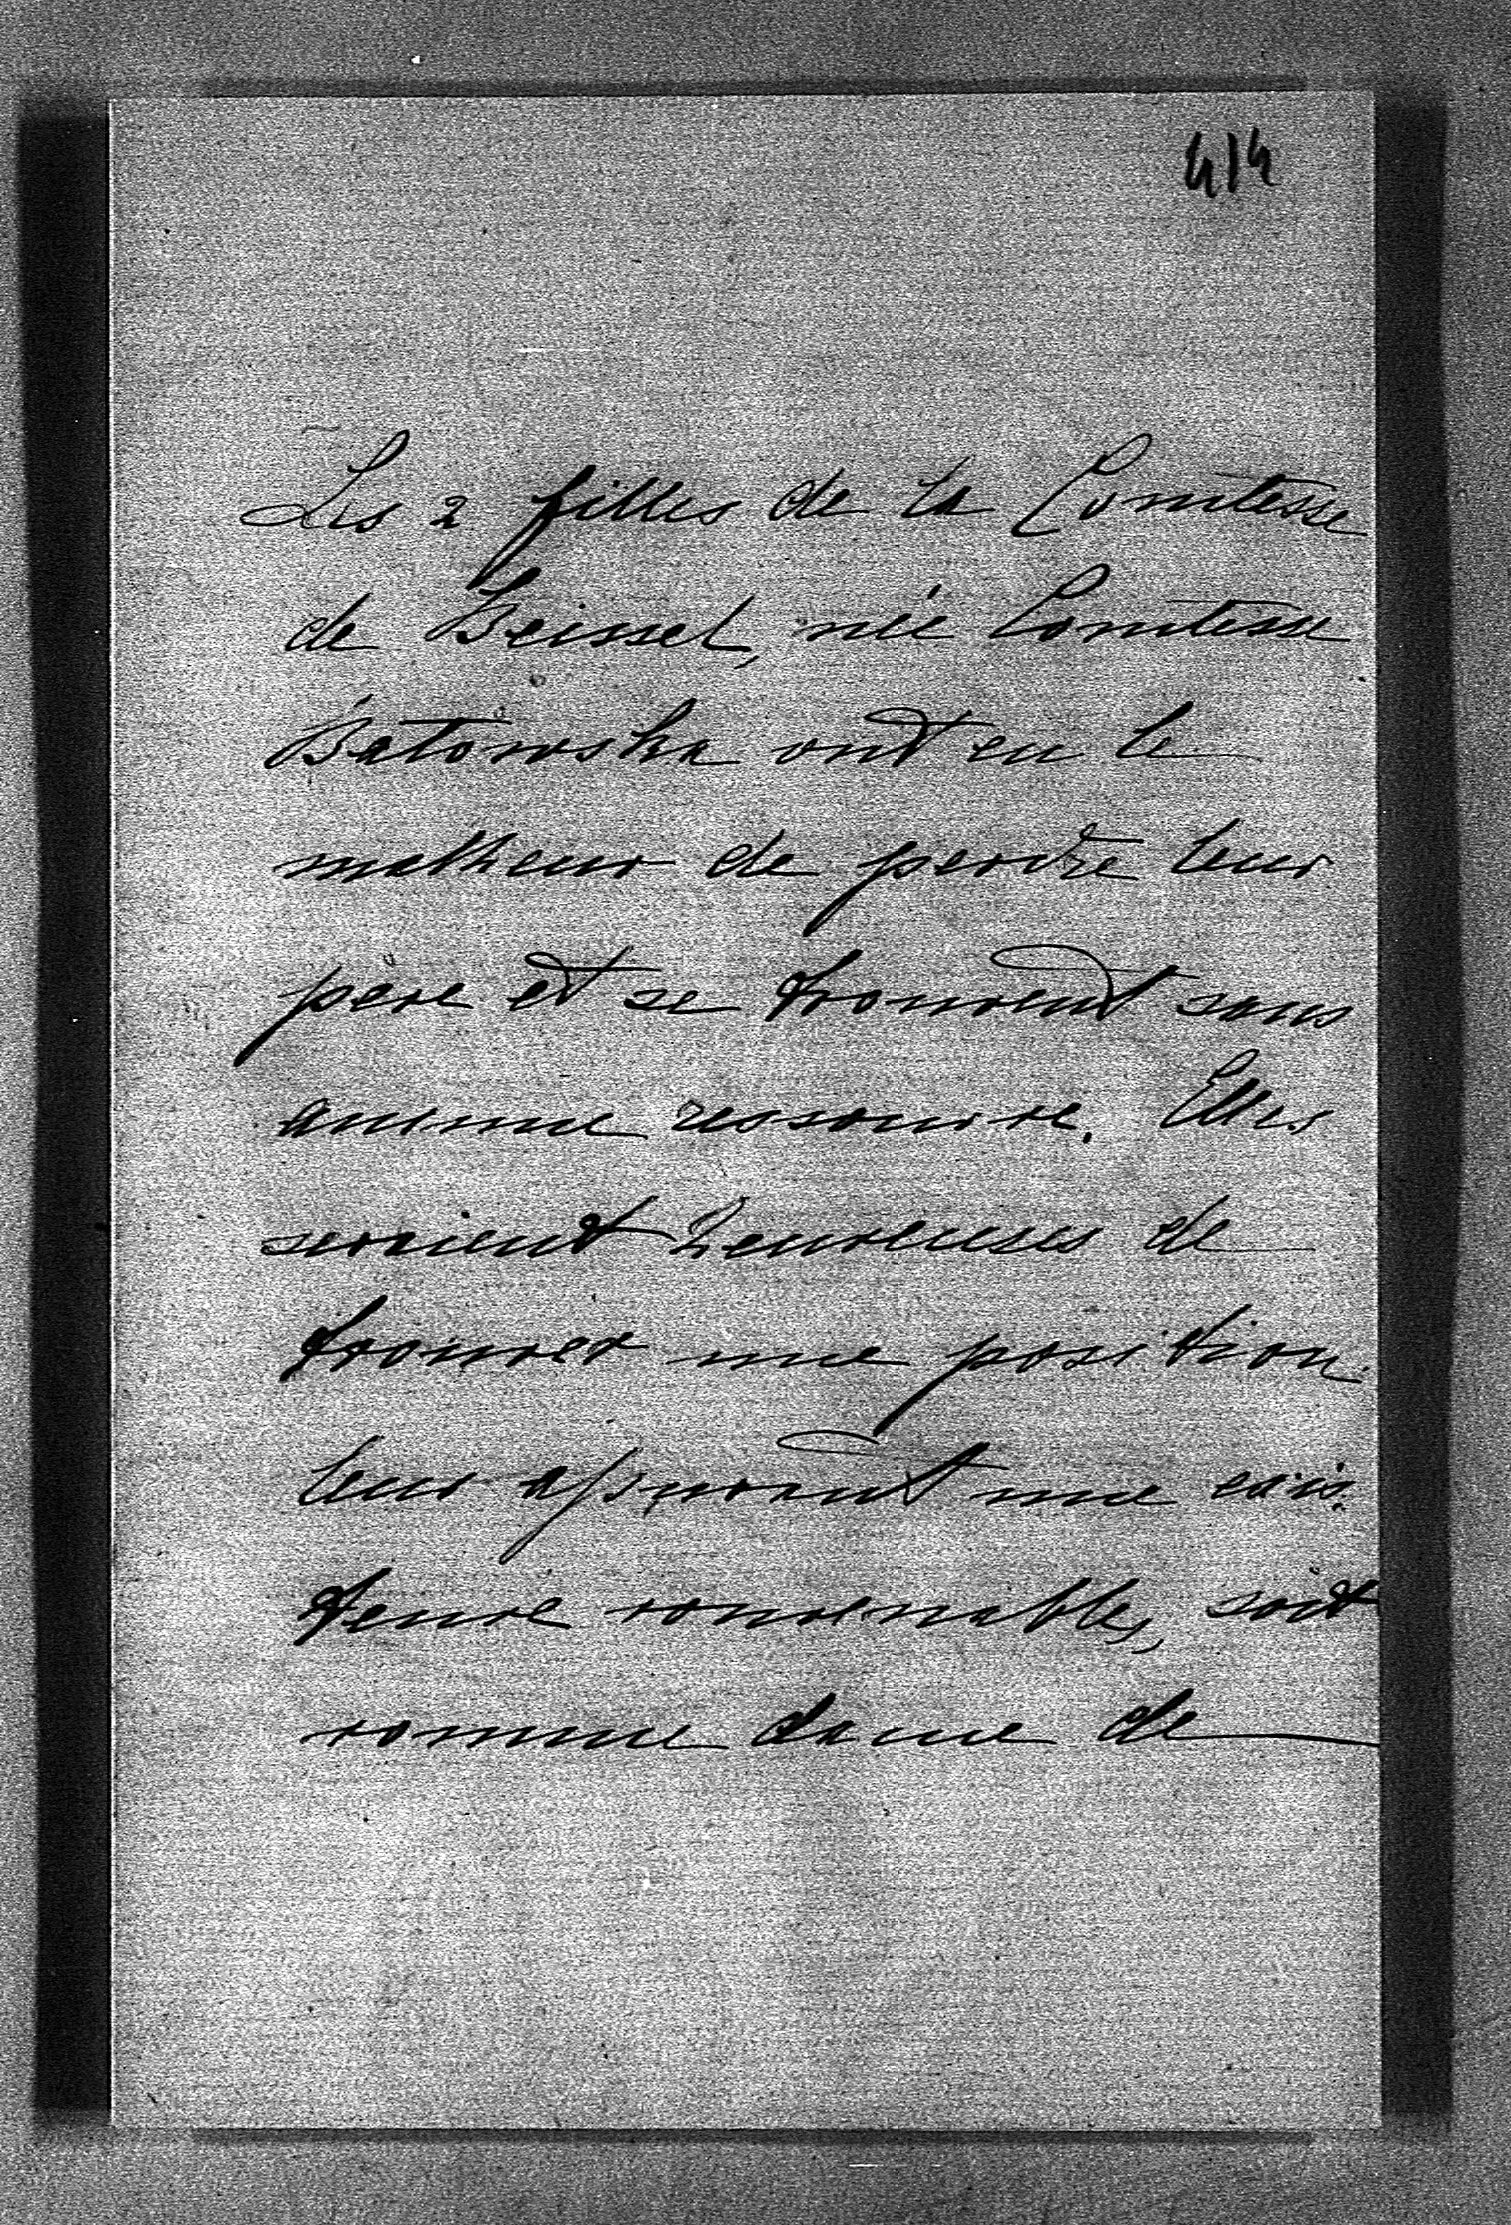 414
Les 2 filles de la Comtesse
de Beissel, née Comtesse
Batowska ont eu le
malheur de perdre leur
père et se trouvent sans
aucune ressource. Elles
seraient heureuses de
trouver une position
leur assurant une exis-
tence convenable, soit
comme dame de